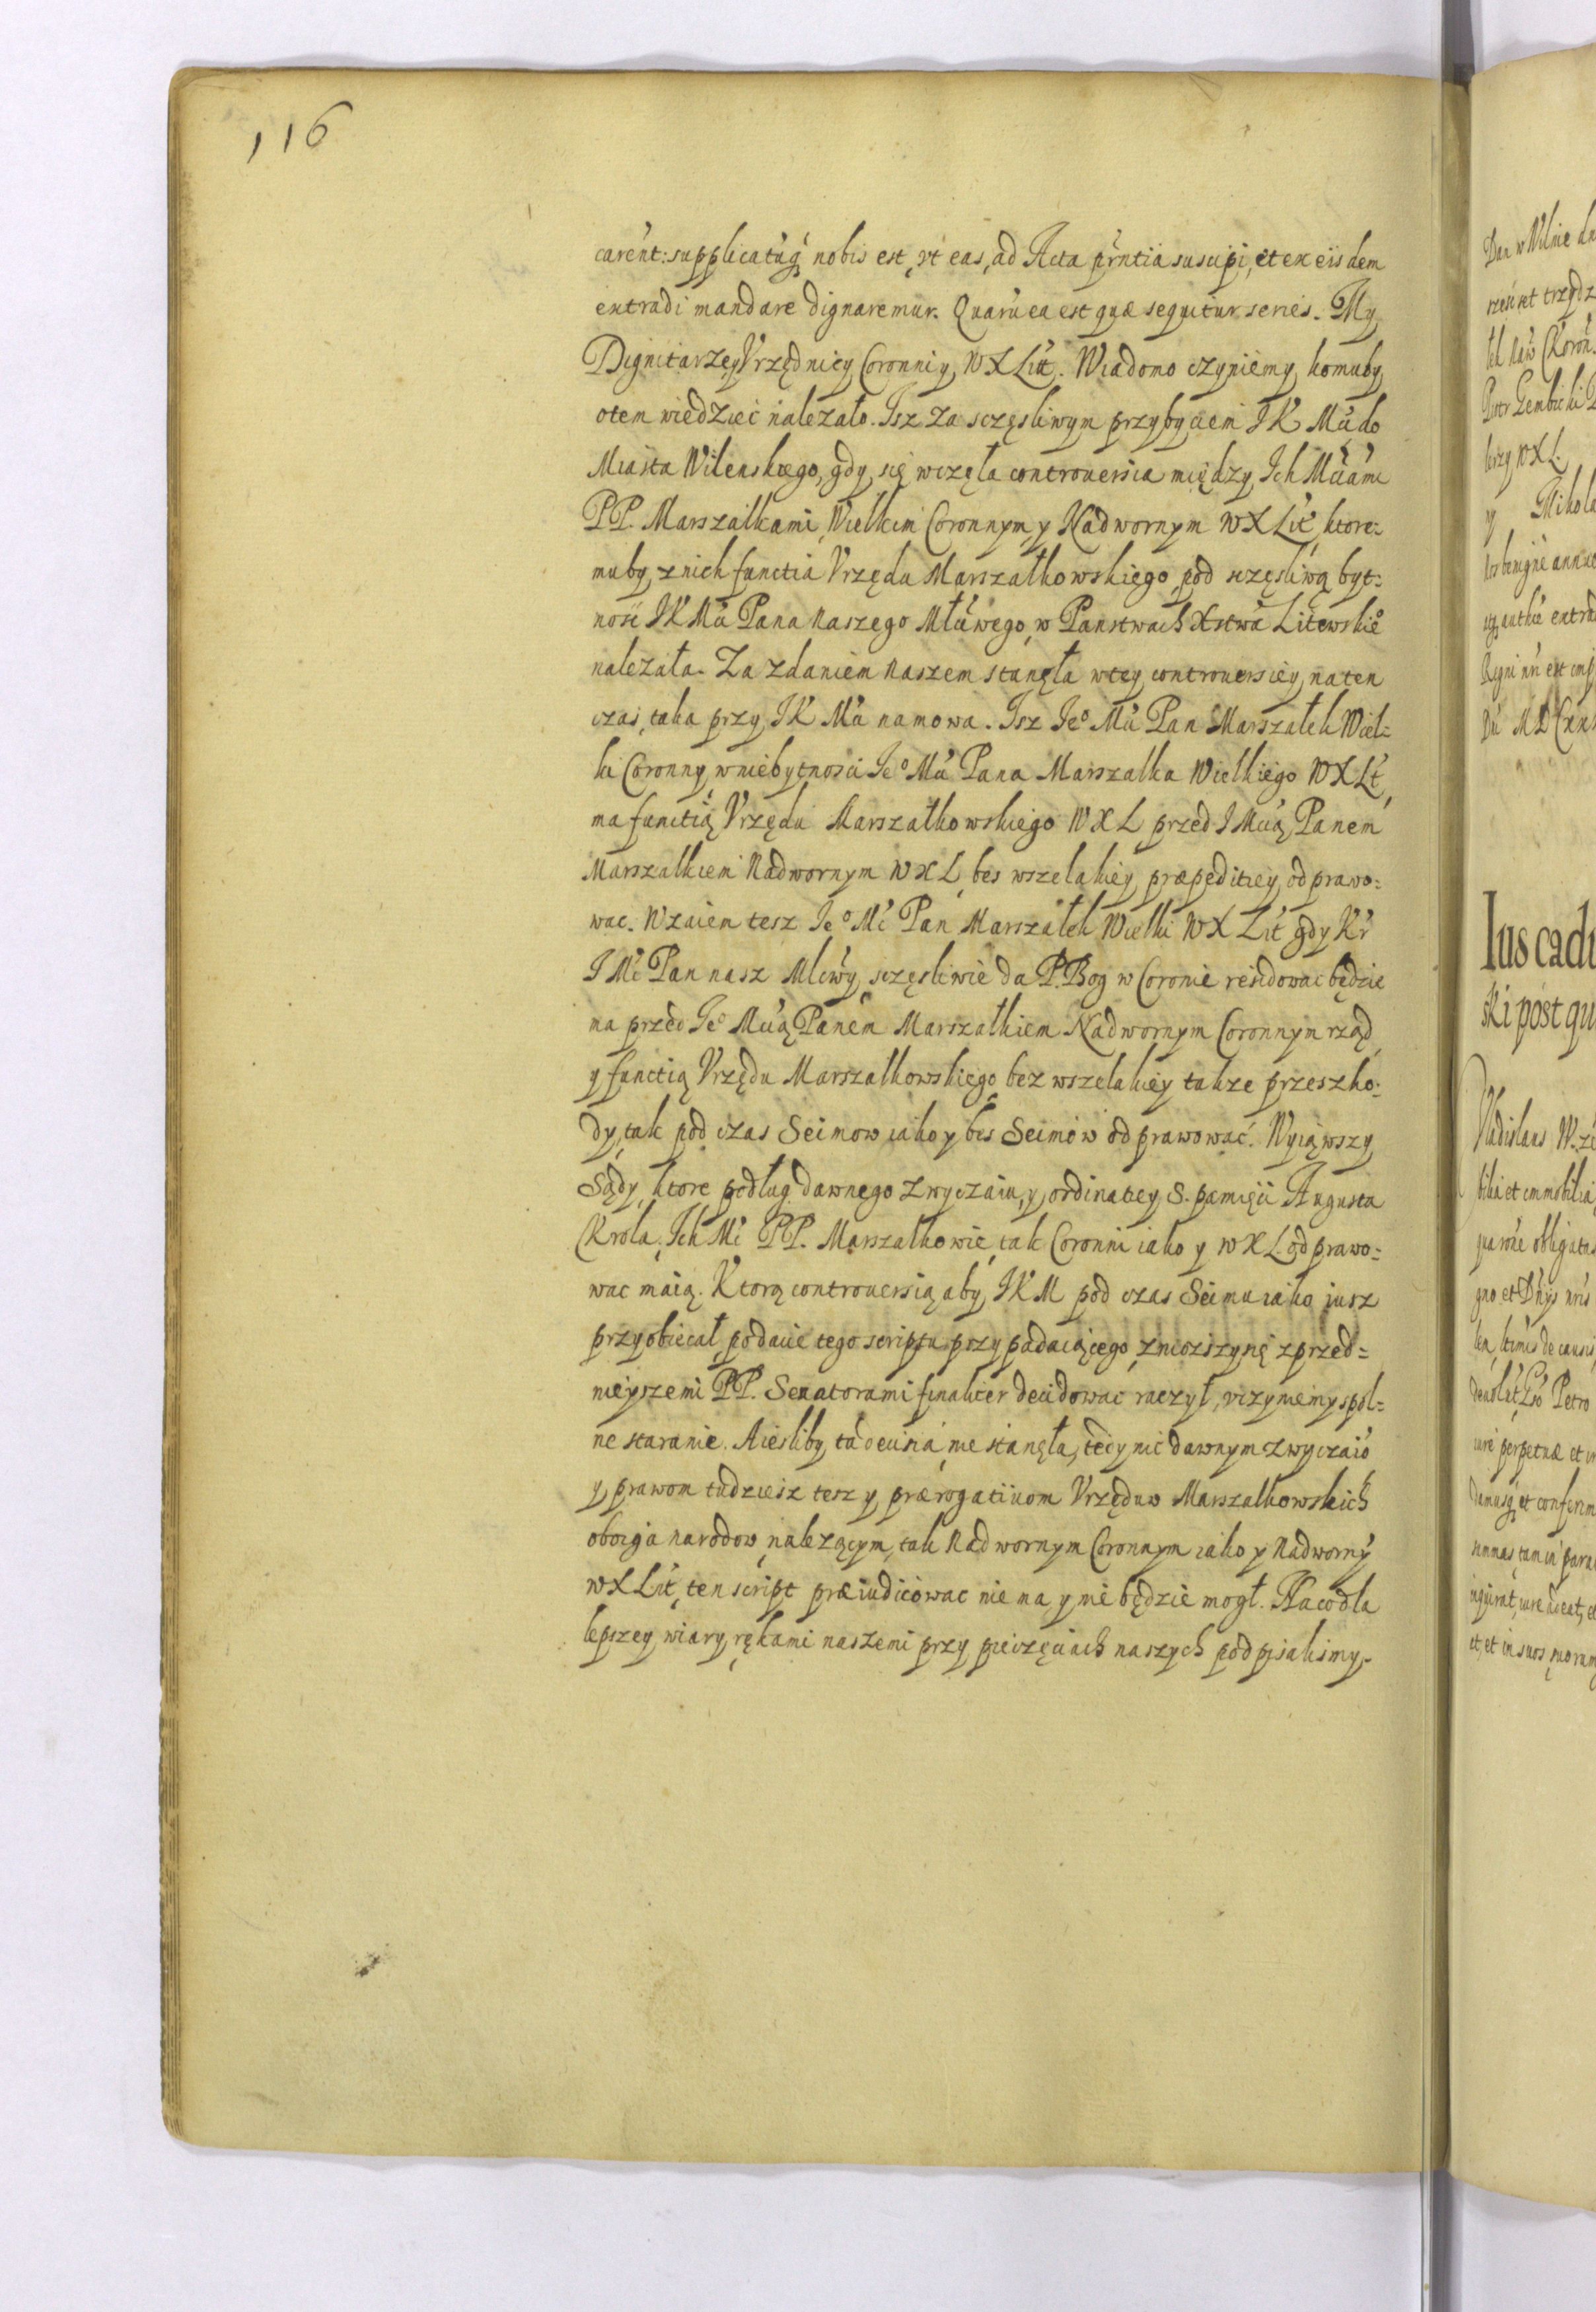 116
carent: supplicatuq nobis est, vt eas, ad Acta prntia suscipi, et ex eisdem
extradi mandare dignaremur. Quaru ea est quæ sequitur series. My
Dignitarze, y Vrzędnicy Coronni y WXLitt. Wiadomo czyniemy komuby
otem wiedzieć nalezało. Isz za sczęsliwym przybyciem IK Mci do
Miasta Wilenskiego, gdy się wczęła controuersia między Ich Mciami
PP. Marszałkami, Wielkim Coronnym, y Nadwornym WXLit, ktore=
muby z nich functia Vrzędu Marszałkowskiego, pod sczęsliwą byt=
nosc IKMci Pana Naszego Młciwego, w Panstwach Xstwa Litewskieº
nalezała. Za zdaniem naszem stanęła wtey controuersiey, na ten
czas, taka przy IK Mci namowa. Isz Ieº Mci Pan Marszałek Wiel=
ki Coronny, wniebytnosci Ieº Mci Pana Marszałka Wielkiego WXLt,
ma functią Vrzędu Marszałkowskiego WXL przed I Mcią Panem
Marszałkiem Nadwornym WXL, bes wszelakiey præpeditiey, odprawo=
wac. Wzaiem tesz Ieº Mc Pan Marszałek Wielki WX Lit gdy Kr
I Mc Pan nasz Mlcwy, sczęsliwie da P. Bog w Coronie residowac będzie
ma przed Ieº Mcią Panem Marszałkiem Nadwornym Coronnym rząd,
y functią Vrzędu Marszałkowskiego, bez wszelakiey takze przeszko=
dy, tak pod czas Seimow iako y bes Seimow odprawować. Wyiąwszy
Sądy, ktore podług dawnego zwyczaiu, y ordinatiey S. pamięci Augusta
Krola, Ich Mc PP. Marszałkowie, tak Coronni iako y WXL odprawo=
wac maią. Ktorą controuersią aby IKM pod czas Seimu iako iusz
przyobiecał, podacie tego scriptu przypadaiącego, zniozszy się z przed=
nieyszemi PP. Senatorami finaliter decidowac raczył, vczyniemy spol=
ne staranie. A iesliby ta decisia, nie stanęła, tedy nic dawnym zwyczaiō
y prawom tudziesz tesz y prærogatiuom Vrzęduw Marszałkowskich
oboyga narodow, nalezącym, tak Nadwornym Coronnym iako y Nadworny
WXLit, ten script præiudicowac nie ma, y nie będzie mogł. Na co dla
lepszey wiary, rękami naszemi przy pieczęciach naszych podpisalismy.
Dan w Wilnie
Petr Gembicki
krzy WXL.
y Mikola
Ius cadu
ski post qu
Vladislaus